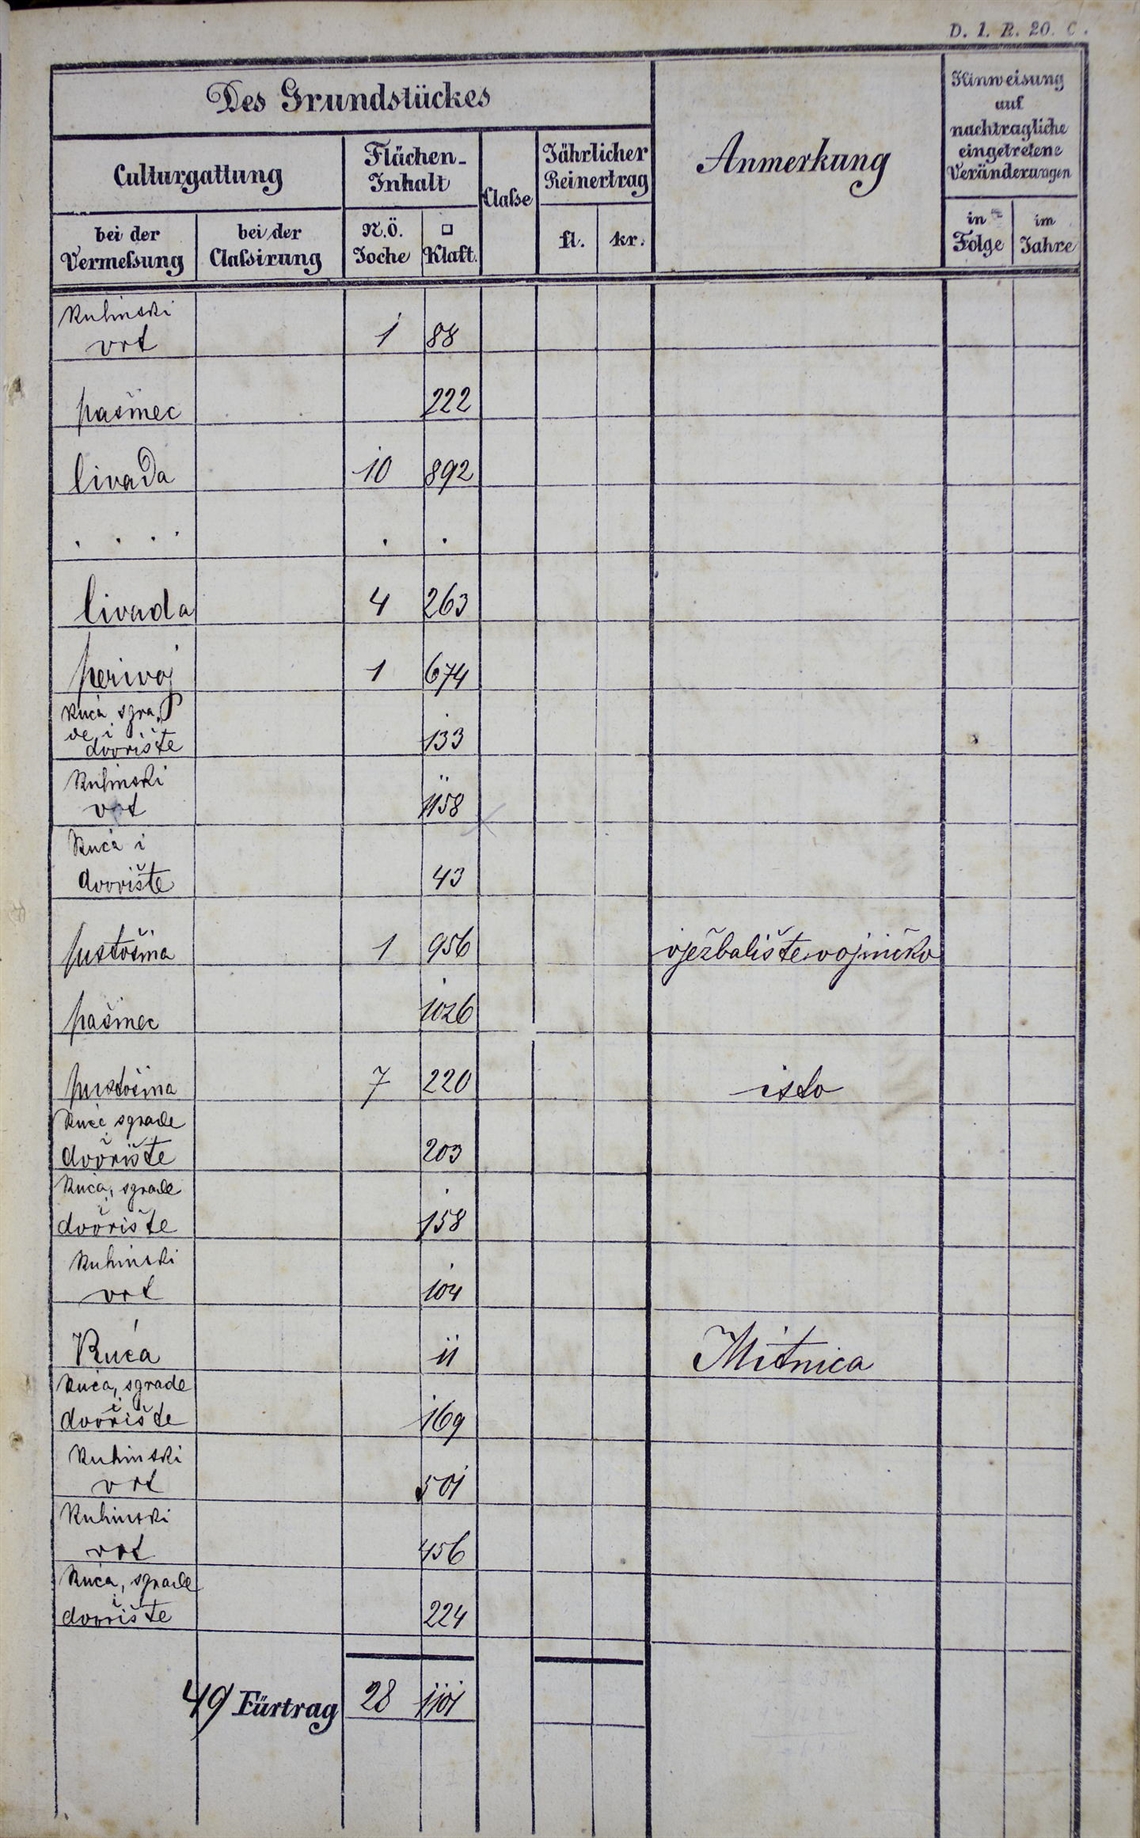 D. 1. R. 20. C.
Des Grundstückes
Anmerkung
Hinweisung
auf
nachtragliche
eingetretene
Veränderungen
Culturgattung
Flächen-
Inhalt
Claße
Jährlicher
Reinertrag
bei der
Vermeßung
bei der
Claßirung
N.Ö.
Joche
□
Klaft.
fl.
kr.
in
Folge
im
Jahre
Kuhinski
vrt 1 88
pašinec 222
livada 10 892
. . . . . .
livada 4 263
perivoj 1 674
Kuća sgra
de i
dvorište 133
Kuhinski
vrt 1158
Kuća i
dvorište 43
pustošina 1 956 vježbalište vojničko
pašinec 1026
pustošina 7 220 isto
Kuće sgrade
i
dvorište 203
Kuća, sgrade
i
dvorište 158
Kuhinski
vrt 104
Kuća 11 Mitnica
Kuća, sgrade
i
dvorište 169
Kuhinski
vrt 501
Kuhinski
vrt 456
Kuća, sgrade
i
dvorište 224
49 Fürtrag 28 1101